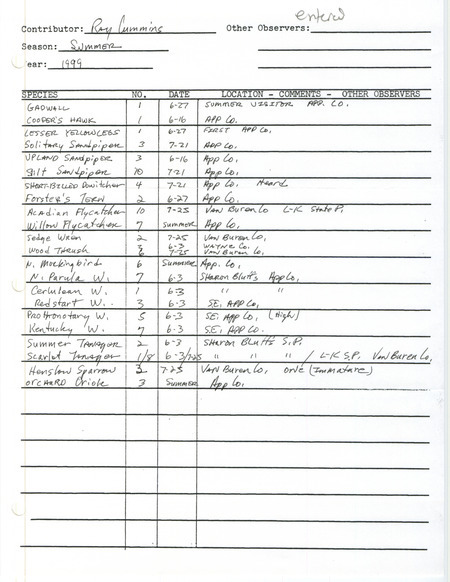 entered
Contributor: Ray Cummins Other Observers:
Season: Summer
Year: 1999
SPECIES NO. DATE LOCATION - COMMENTS - OTHER OBSERVERS
GADWALL 1 6-27 SUMMER VISITOR APP. Co.
COOPER'S HAWK 1 6-16 APP Co.
LESSER YELLOWLEGS 1 6-27 FIRST APP Co.
Solitary Sandpiper 3 7-21 APP Co.
UPLAND SANDPIPER 3 6-16 App Co.
Stilt Sandpiper 10 7-21 App Co.
SHORT-BILLED Dowitcher 4 7-21 App Co. Heard
Forster's Tern 2 6-27 App Co.
Acadian Flycatcher 10 7-25 Van Buren Co L-K State P.
Willow Flycatcher 7 summer App Co.
Sedge Wren 2 7-25 Van Buren Co,
Wood Thrush 3 6-3 Wayne Co.
6 7-25 Van Buren Co,
N. Mockingbird 6 Summer App. Co.
N. Parula W. 7 6-3 Sharon Bluffs App Co,
Cerulean W. 1 6-3 " "
Redstart W. 3 6-3 SE. App Co,
Prothonotary W. 5 6-3 SE. App Co, (High)
Kentucky W. 7 6-3 SE. App Co.
Summer Tanager 2 6-3 Sharon Bluffs S.P.
Scarlet Tanager 1/8 6-3/7-25 " " " / L-K S.P. Van Buren Co,
Henslow Sparrow 3 7-25 Van Buren Co, one (Immature)
Orchard Oriole 3 Summer App Co,